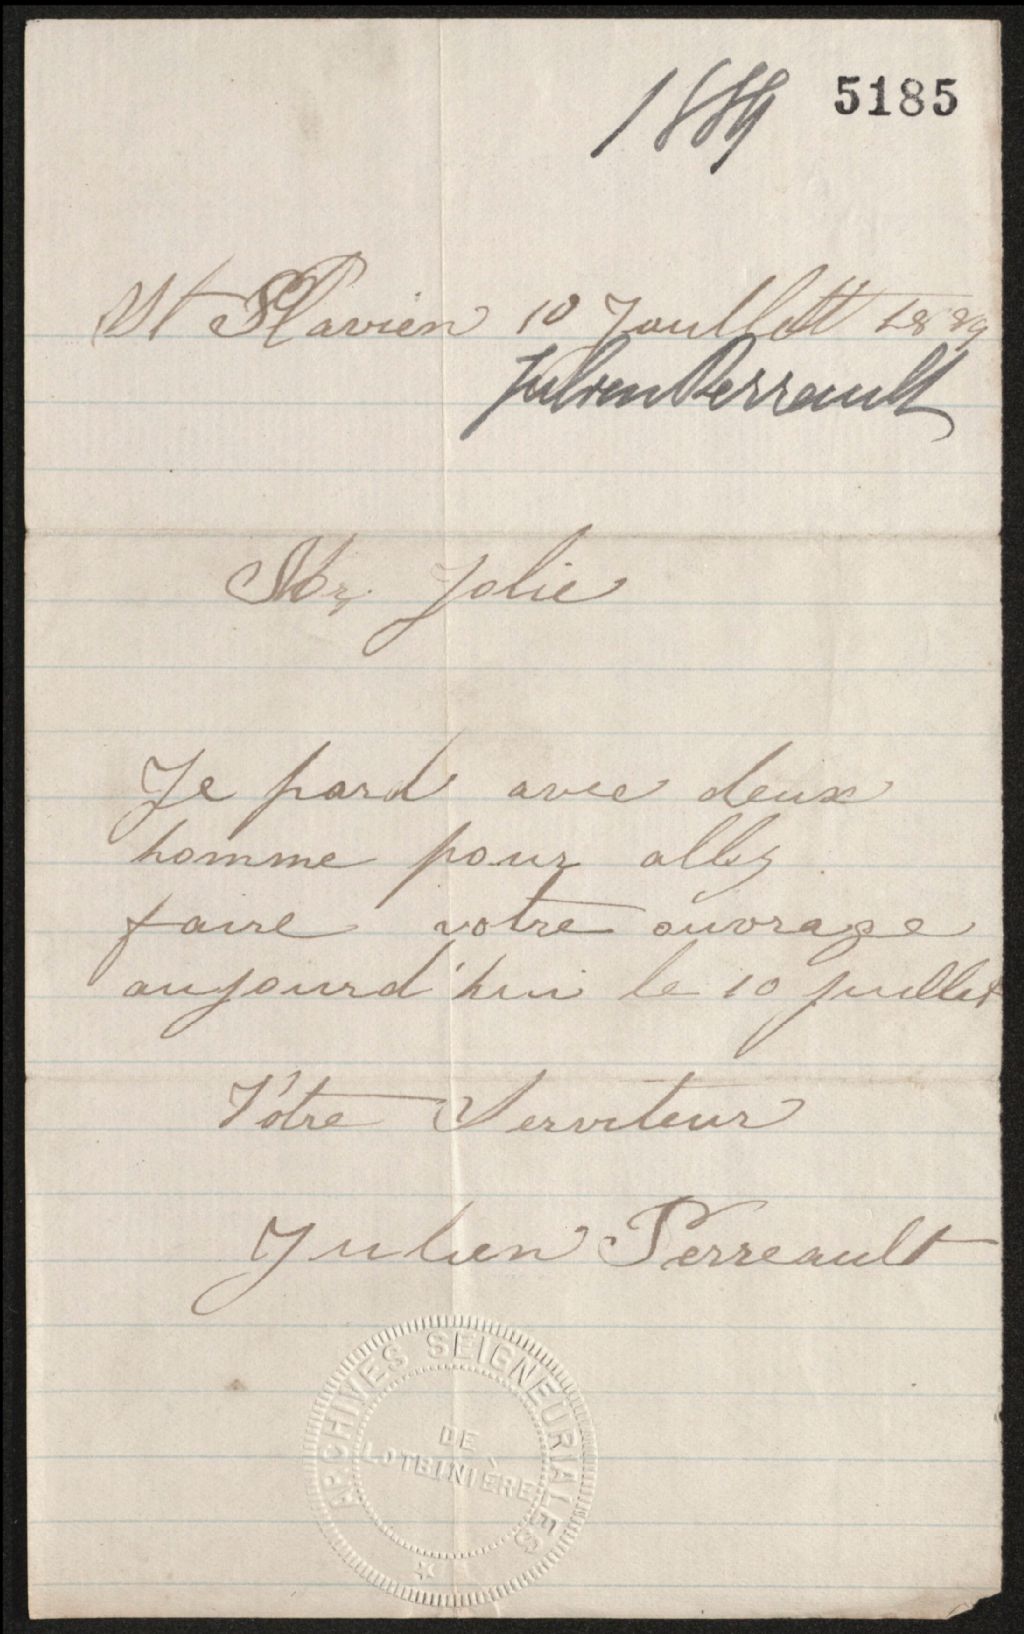 1889 5185
St Flavien 10 Jouillett 1889
Julien Perrault
Mr. Jolie
Je pard avec deux
homme pour allez
faire votre ouvrage
aujourd'hui le 10 juillet
Votre Serviteur
Julien Perreault
ARCHIVES SEIGNEURIALES
DE
LOTBINIÈRE